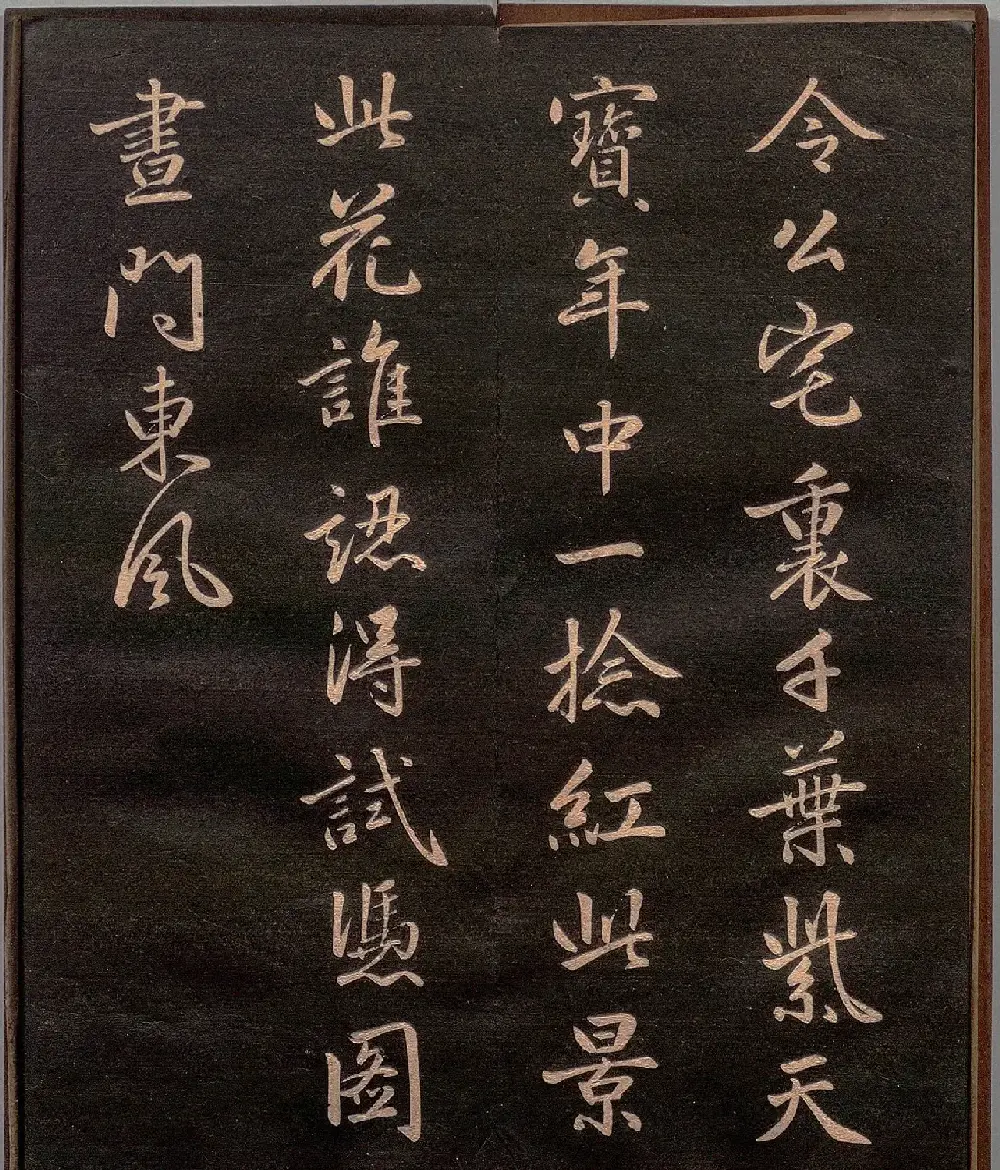 令公宅裏千葉紫天
寶年中一捻紅此景
此花誰認得試憑圖
畫問東風